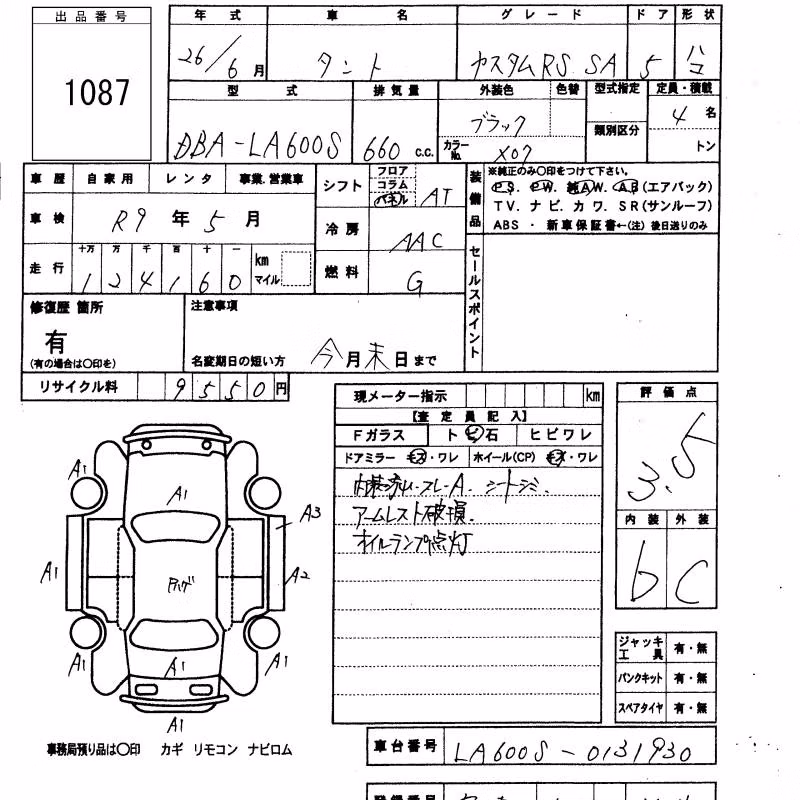 出品番号
1087
年式 車名 グレード ドア 形状
26/6月 タント カスタムRS SA 5 ハコ
型式 排気量 外装色 色替 型式指定 定員・積載
類別区分
DBA-LA600S 660 c.c. ブラック カラーNo. X07 4名
トン
車歴 自家用 レンタ 事業.営業車
車検 R9年5月
走行 十万 万 千 百 十 一
124160 km マイル
シフト フロア コラム パネル AT
冷房 AAC
燃料 G
装備品
※純正のみ〇印をつけて下さい。
P.S. P.W. 純A.W. A.B(エアバック)
T.V. ナビ. カワ. S.R(サンルーフ)
ABS ・ 新車保証書←(注) 後日送りのみ
セールスポイント
修復歴 箇所
有
(有の場合は〇印を)
注意事項
名変期日の短い方 今月末日まで
リサイクル料 9550円
現メーター指示 km
【査定員記入】
Fガラス ト ビ 石 ヒビワレ
ドアミラー キズ・ワレ ホイール(CP) キズ・ワレ
シートシミ
アームレスト破損.
オイルランプ点灯
評価点
3.5
内装 外装
b C
A1
A1
A1
A3
A1
A2
A1
A1
A1
A1
ジャッキ工具 有・無
パンクキット 有・無
スペアタイヤ 有・無
事務局預り品は〇印 カギ リモコン ナビロム
車台番号 LA600S-0131930